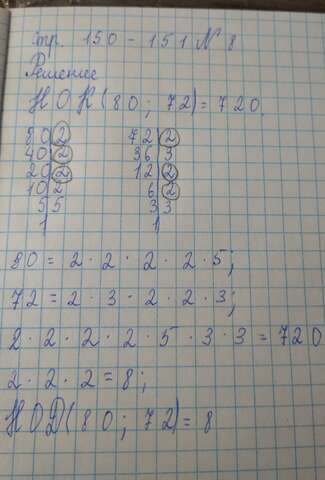 стр. 150-151 № 8
Решение
НОК(80; 72)=720.
80 2 72 2
40 2 36 3
20 2 12 2
10 2 6 2
5 5 3 3
1 1
80 = 2 · 2 · 2 · 2 · 5;
72 = 2 · 3 · 2 · 2 · 3;
2 · 2 · 2 · 2 · 5 · 3 · 3 = 720
2 · 2 · 2 = 8;
НОД(80; 72)=8